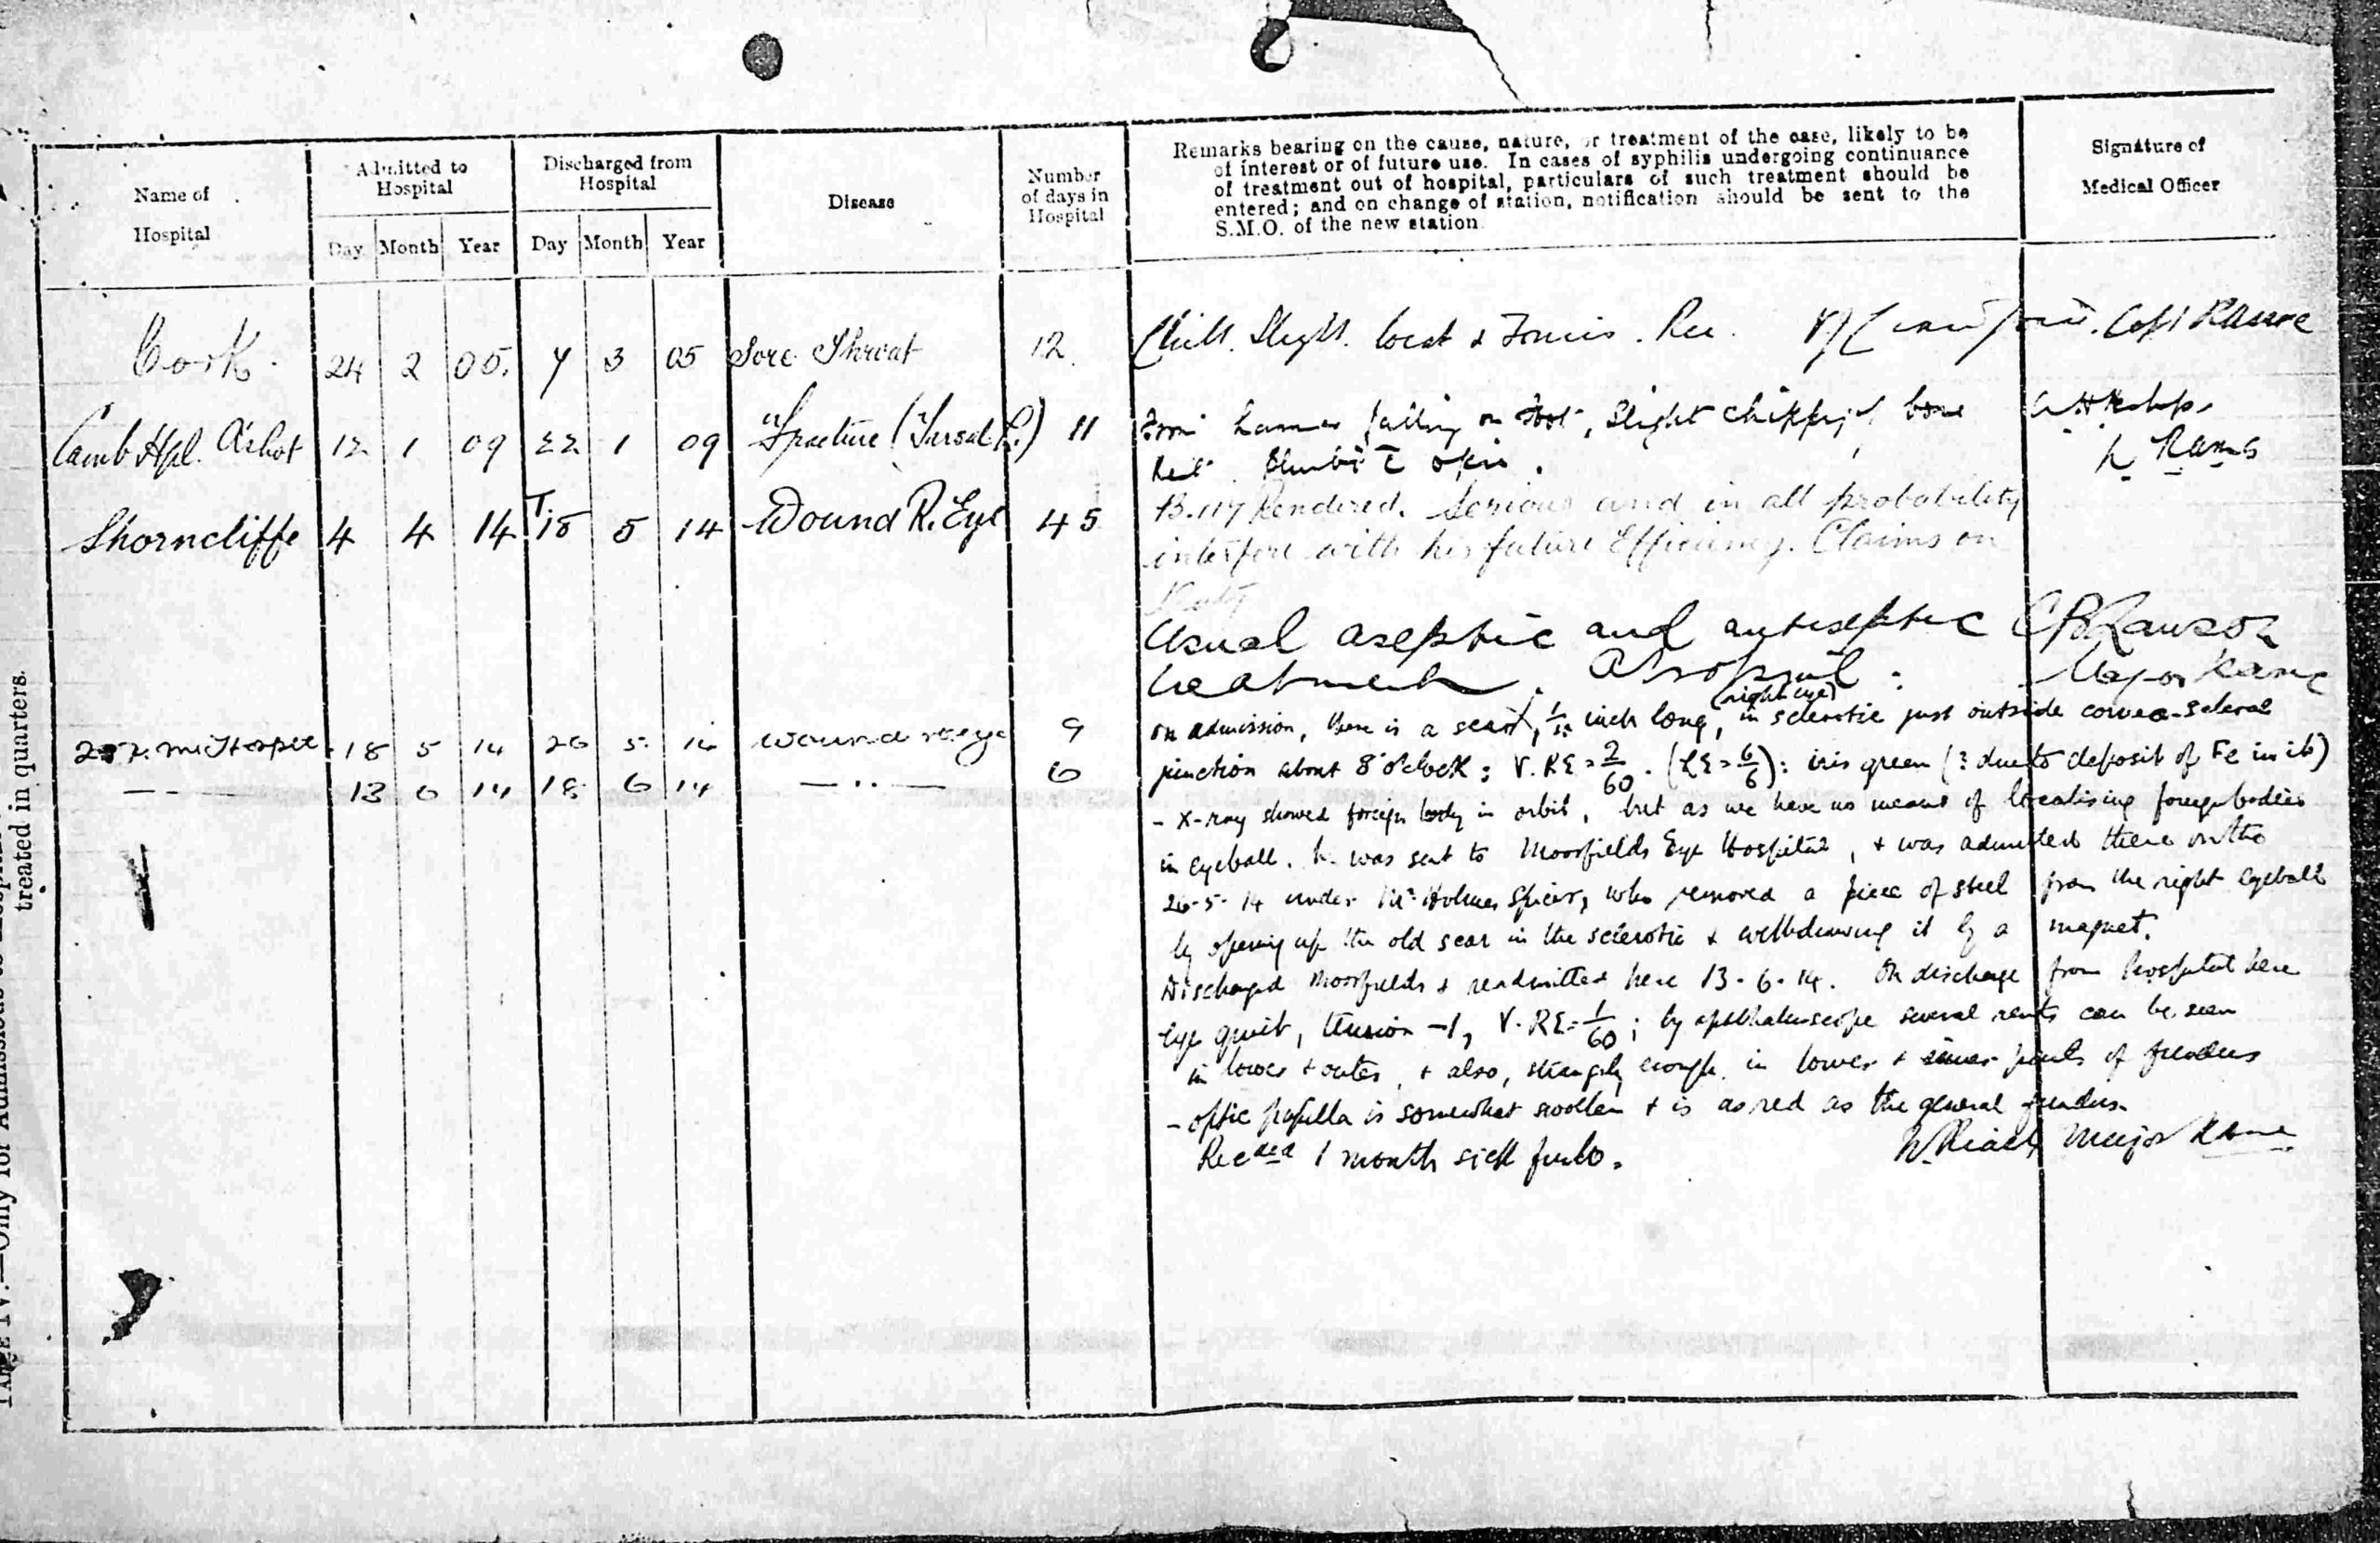 treated in quarters.
Name of
Hospital
Admitted to
Hospital
Discharged from
Hospital
Day Month Year Day Month Year
Disease
Number
of days in
Hospital
Remarks bearing on the cause, nature, or treatment of the case, likely to be
of interest or of future use. In cases of syphilis undergoing continuance
of treatment out of hospital, particulars of such treatment should be
entered; and on change of station, notification should be sent to the
S.M.O. of the new station.
Signature of
Medical Officer
Cork 24 2 05. 7 3 05 Sore Throat 12 Chill. Slight. local & Tonics. Rec. Capt RAMC
Camb Hpl. A'shot 12 1 09 22 1 09 Fracture (Tarsal R.) 11 From hammer falling on foot, slight chipping of bone
RAMC
Shorncliffe 4 4 14 T. 18 5 14 Wound R. Eye 45 B.117 Rendered. Serious and in all probability
interfere with his future Efficiency. Claims on
Duty
Usual aseptic and antiseptic C B Lawson
treatment. Atropine. Major RAMC
Hospl 18 5 14 26 5 14 Wound r eye 9 on admission, there is a scar, inch long, (right eye) in sclerotic just outside corneo-scleral
13 6 14 18 6 14 — " — 6 junction about 8 o'clock: V. RE = 2/60. (LE = 6/6): iris green (? due to deposit of Fe in it)
- X-ray showed foreign body in orbit, but as we have no means of localising foreign bodies
in eyeball, he was sent to Moorfields Eye Hospital, & was admitted there on the
26-5-14 under Mr Holmes Spicer, who removed a piece of steel from the right eyeball
by opening up the old scar in the sclerotic & withdrawing it by a magnet.
Discharged Moorfields & readmitted here 13-6-14. On discharge from hospital here
eye quiet, tension -1, V. RE = 1/60; by ophthalmoscope several rents can be seen
in lower & outer, & also, strangely enough, in lower & inner parts of fundus
- optic papilla is somewhat swollen & is as red as the general fundus.
Recded 1 month sick furlo. Major RAMC